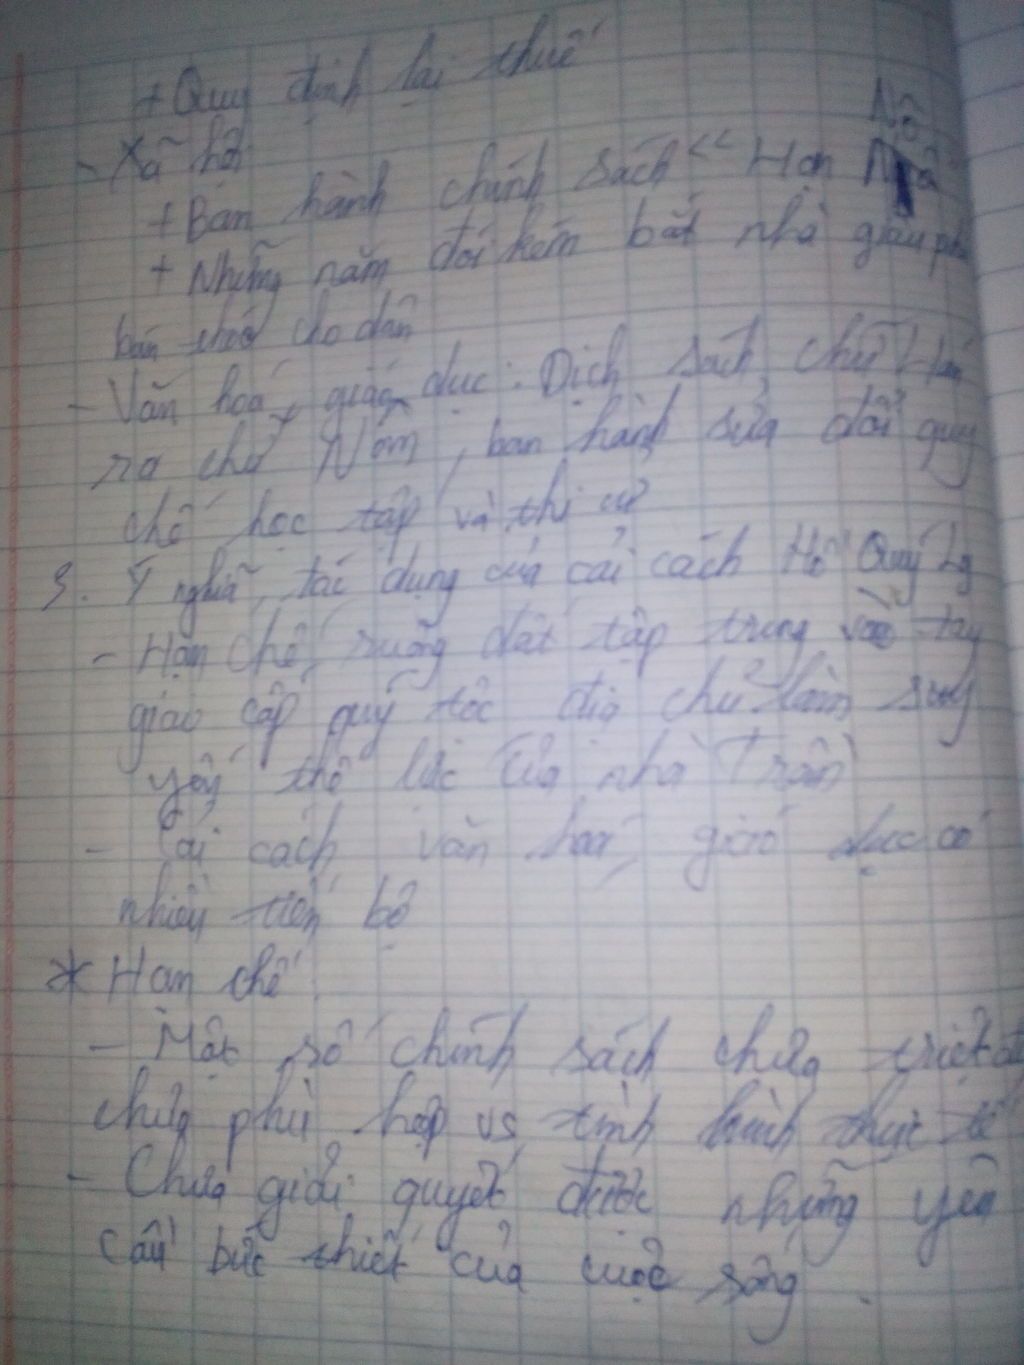 + Quy định lại thuế
- Xã hội
+ Ban hành chính sách "Hạn Nô
+ Những năm đói kém bắt nhà giàu phải
bán thóc cho dân
- Văn hoá, giáo dục: Dịch sách chữ Hán
ra chữ Nôm, ban hành sửa đổi quy
chế học tập và thi cử
3. Ý nghĩa, tác dụng của cải cách Hồ Quý Ly
- Hạn chế, ruộng đất tập trung vào tay
giao cấp quý tộc địa chủ làm suy
yếu thế lực của nhà Trần
- Cải cách văn hoá, giáo dục có
nhiều tiến bộ
* Hạn chế
- Một số chính sách chưa triệt để
chưa phù hợp vs tình hình thực tế
- Chưa giải quyết được những yêu
cầu bức thiết của cuộc sống.